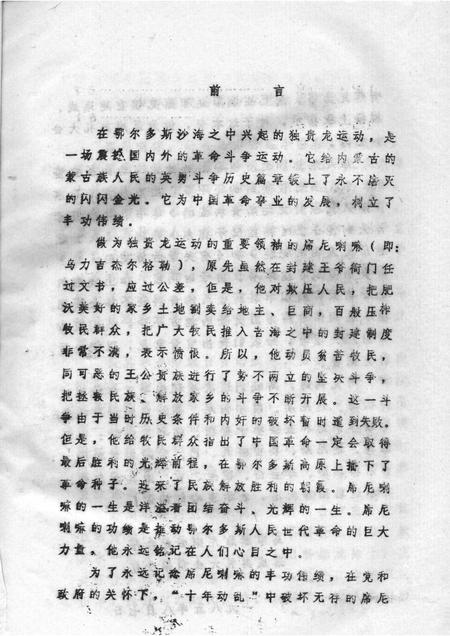 前 言
在鄂尔多斯沙海之中兴起的独贵龙运动，是
一场震撼国内外的革命斗争运动。它给内蒙古的
蒙古族人民的英勇斗争历史篇章镀上了永不磨灭
的闪闪金光。它为中国革命事业的发展，树立了
丰功伟绩。
做为独贵龙运动的重要领袖的席尼喇嘛（即：
乌力吉杰尔格勒），原先虽然在封建王爷衙门任
过文书，应过公差，但是，他对欺压人民，把肥
沃美好的家乡土地剥卖给地主、巨商，百般压榨
牧民群众，把广大牧民推入苦海之中的封建制度
非常不满，表示愤恨。所以，他动员贫苦牧民，
同可恶的王公贵族进行了势不两立的坚决斗争，
把拯救民族、解放家乡的斗争不断开展。这一斗
争由于当时历史条件和内奸的破坏暂时遭到失败。
但是，他给牧民群众指出了中国革命一定会取得
最后胜利的光辉前程，在鄂尔多斯高原上播下了
革命种子。迎来了民族解放胜利的朝霞。席尼喇
嘛的一生是洋溢着团结奋斗、光辉的一生。席尼
喇嘛的功绩是推动鄂尔多斯人民世代革命的巨大
力量。他永远铭记在人们心目之中。
为了永远记念席尼喇嘛的丰功伟绩，在党和
政府的关怀下，“十年动乱”中破坏无存的席尼